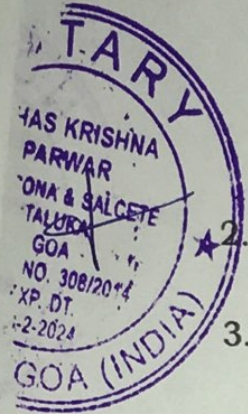 TARY
HAS KRISHNA
PARWAR
ONA & SALCETE
TALUKA
GOA
NO. 308/2014
XP. DT.
-2-2024
GOA (INDIA)
2.
3.